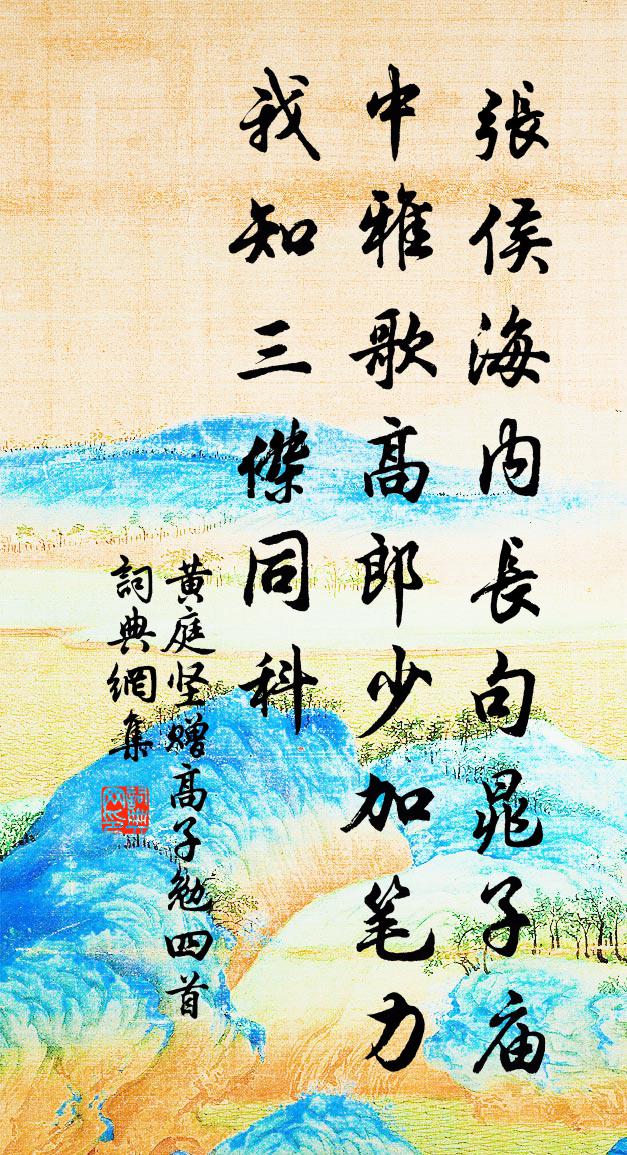 張侯海内長句晁子庙
中雅歌高郎少加笔力
我知三傑同科
黄庭坚赠高子勉四首
詞典網集